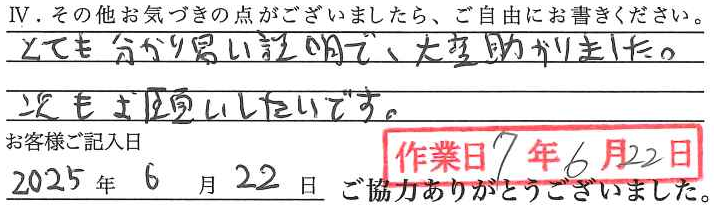 Ⅳ．その他お気づきの点がございましたら、ご自由にお書きください。
とても分かり易い説明で、大変助かりました。
次もお願いしたいです。
お客様ご記入日
作業日 7年6月22日
2025年 6月 22日 ご協力ありがとうございました。